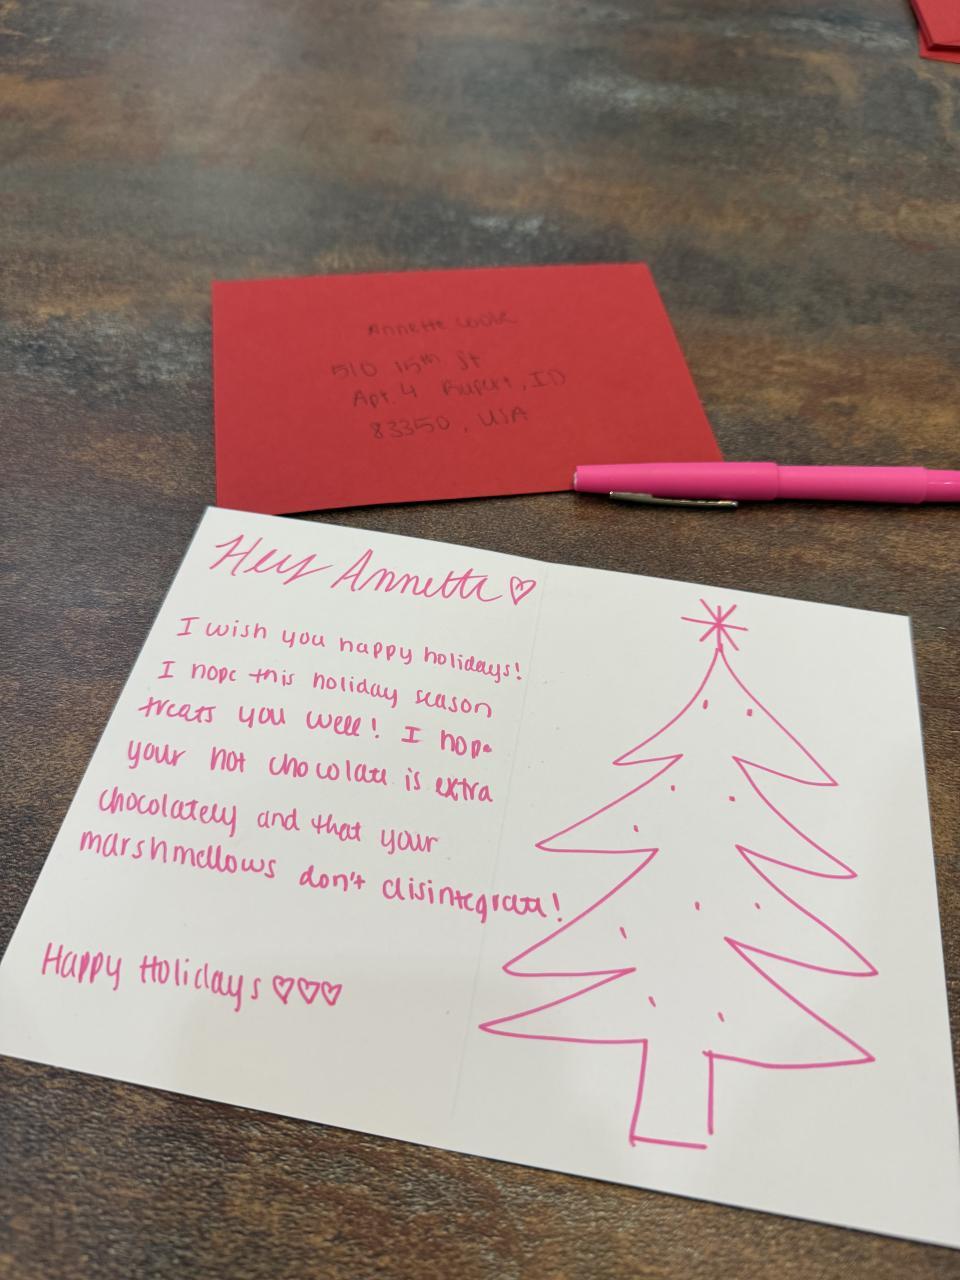 Annette
510 15th St
Apt. 4 Rupert, ID
83350, USA
Hey Annette
I wish you happy holidays!
I hope this holiday season
treats you well! I hope
your hot chocolate is extra
chocolately and that your
marshmellows don't disintegrate!
Happy Holidays